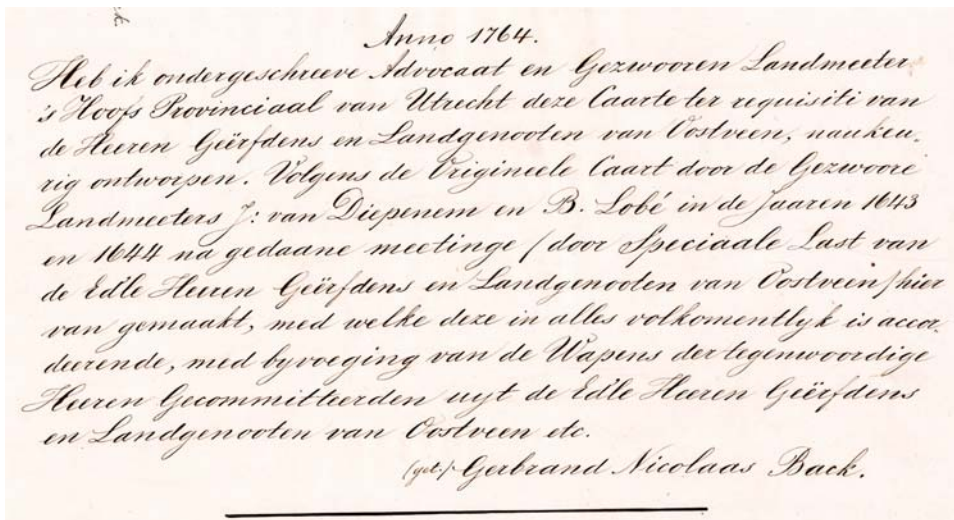 Anno 1764.
Heb ik ondergeschreeve Advocaat en Gezwooren Landmeeter
's Hoofs Provinciaal van Utrecht deze Caarte ter requisiti van
de Heeren Geërfdens en Landgenooten van Oostveen, naukeu-
rig ontworpen. Volgens de Origineele Caart door de Gezwoore
Landmeeters J: van Diepenem en B. Lobé in de Jaaren 1643
en 1644 na gedaane meetinge / door Speciaale Last van
de Edle Heeren Geërfdens en Landgenooten van Oostveen / hier
van gemaakt, med welke deze in alles volkomentlyk is accor-
deerende, med byvoeging van de Wapens der tegenwoordige
Heeren Gecommitteerden uyt de Edle Heeren Geërfdens
en Landgenooten van Oostveen etc.
(get.) Gerbrand Nicolaas Back.